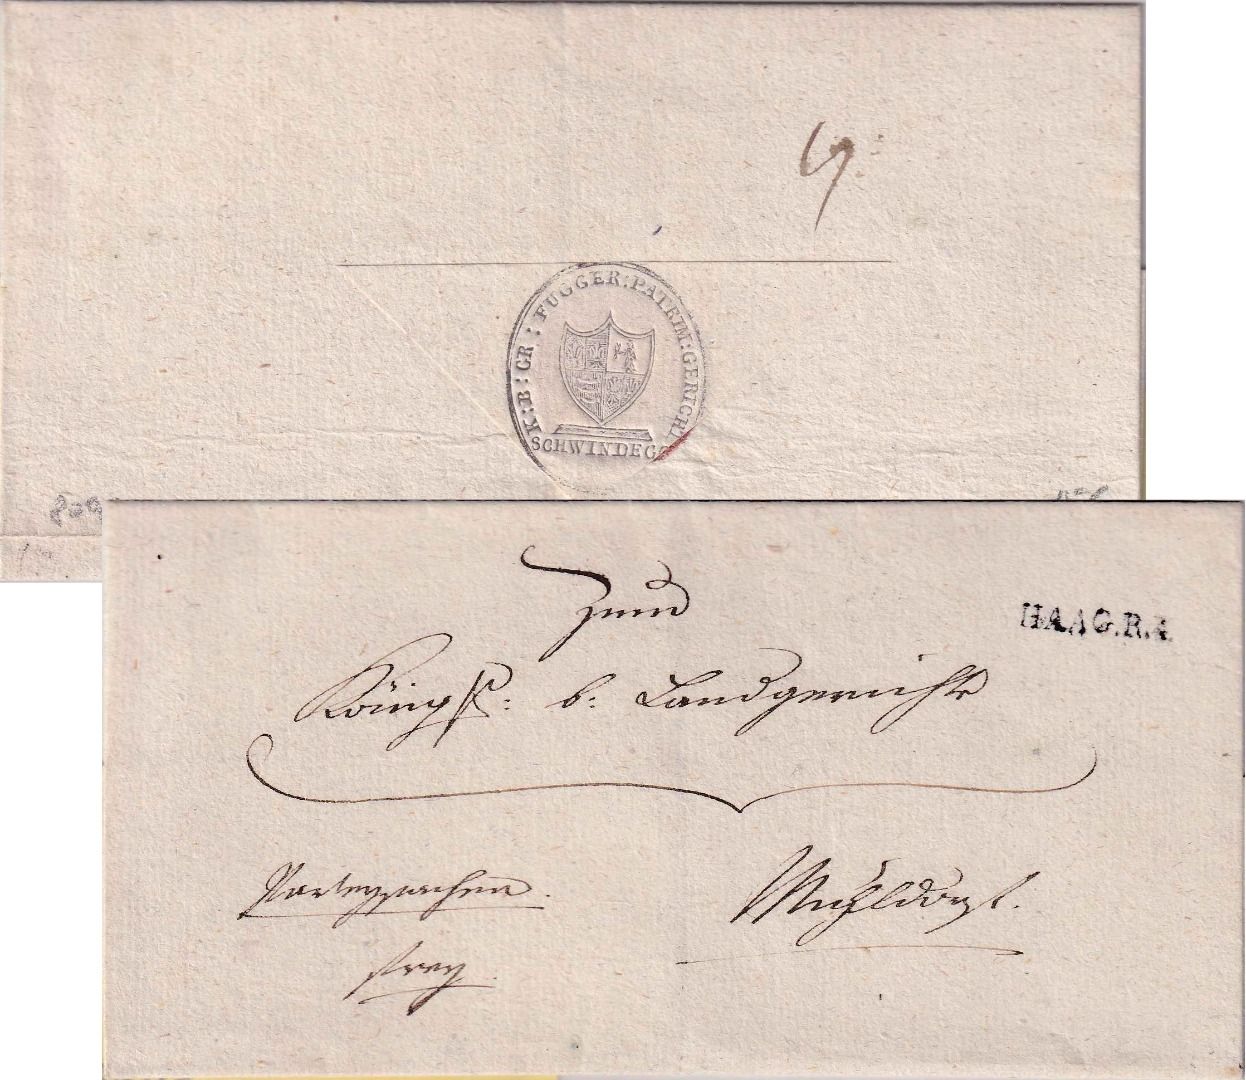 K:B:GR:FUGGER:PATRIM:GERICHT
SCHWINDEGG
HAAG.R.4
Zum
Königl: b: Landgericht
Partheysachen.
frey
Mühldorf.